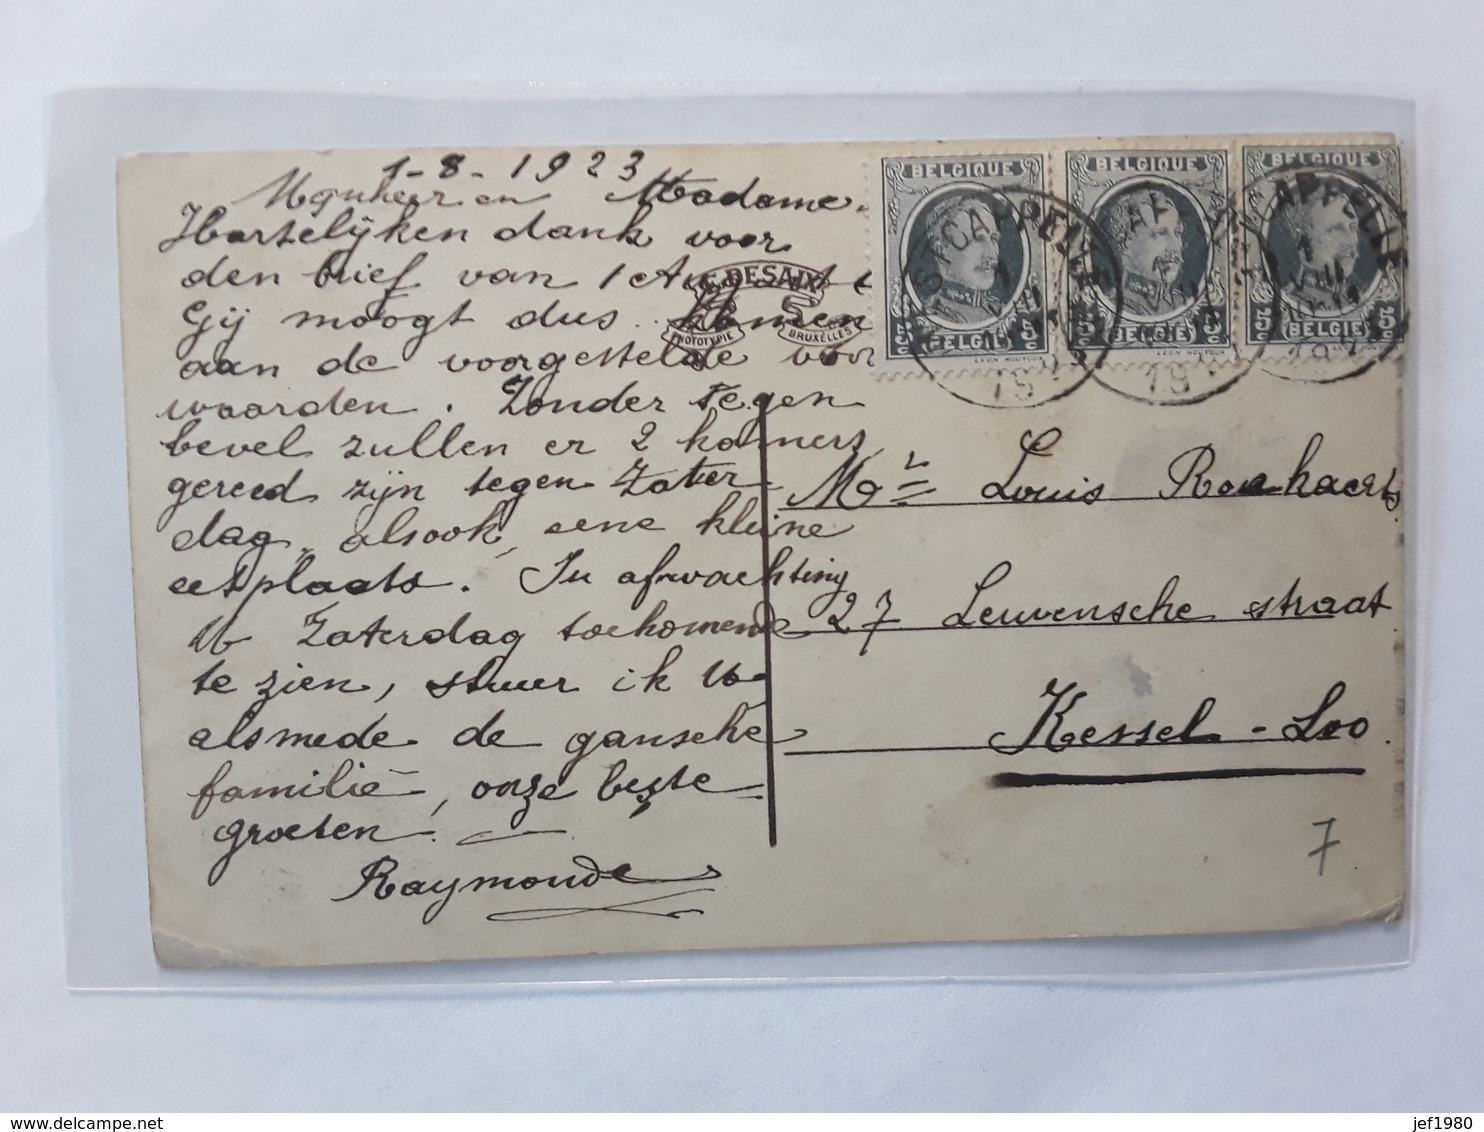 1-8-1923
Mynheer en Madame.
Hartelijken dank voor
den brief van 1 August
Gij moogt dus komen
aan de voorgestelde voor
waarden. Zonder tegen
bevel zullen er 2 kamers
gereed zijn tegen Zater
dag, alsook eene kleine
eetplaats. In afwachting
U Zaterdag toekomende
te zien, stuur ik U
alsmede de gansche
familie, onze beste
groeten.
Raymonde
E. DESAIX
PHOTOTYPIE BRUXELLES
BELGIQUE BELGIQUE BELGIQUE
5c BELGIË 5c 5c BELGIË 5c 5c BELGIE 5c
LEON HOUYOUX
Mr Louis
27 Leuvensche straat
Kessel-Loo
7
jef1980